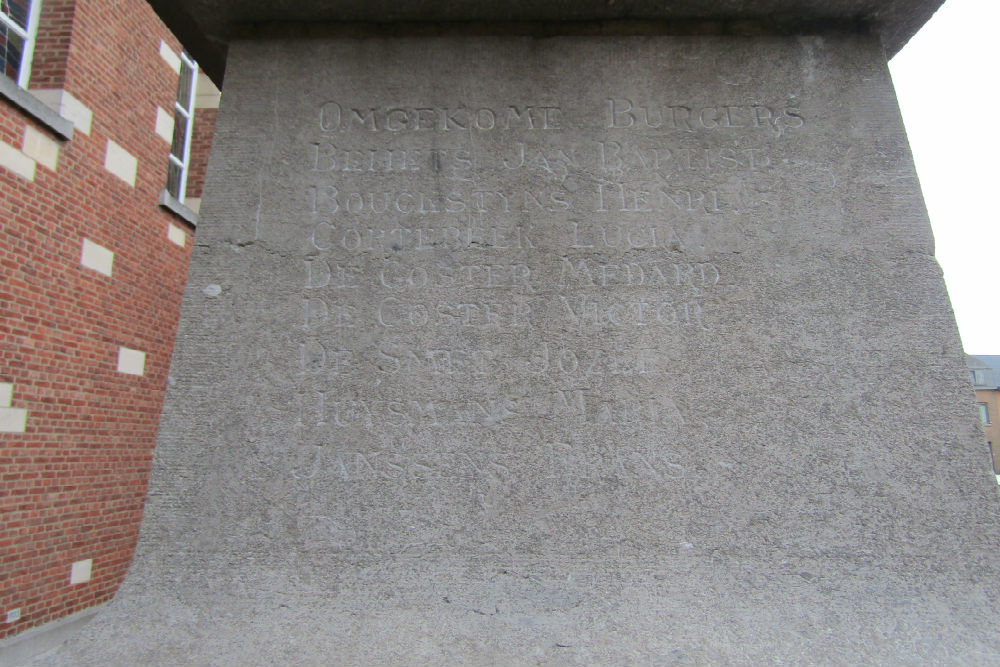 OMGEKOME BURGERS
BEHETS JAN BAPTIST
BOUCKSTYNS HENRI
CORTEBEEK LUCIA
DE COSTER MEDARD
DE COSTER VICTOR
DE SMET JOZEF
HUYSMANS MARIA
JANSSENS FRANS